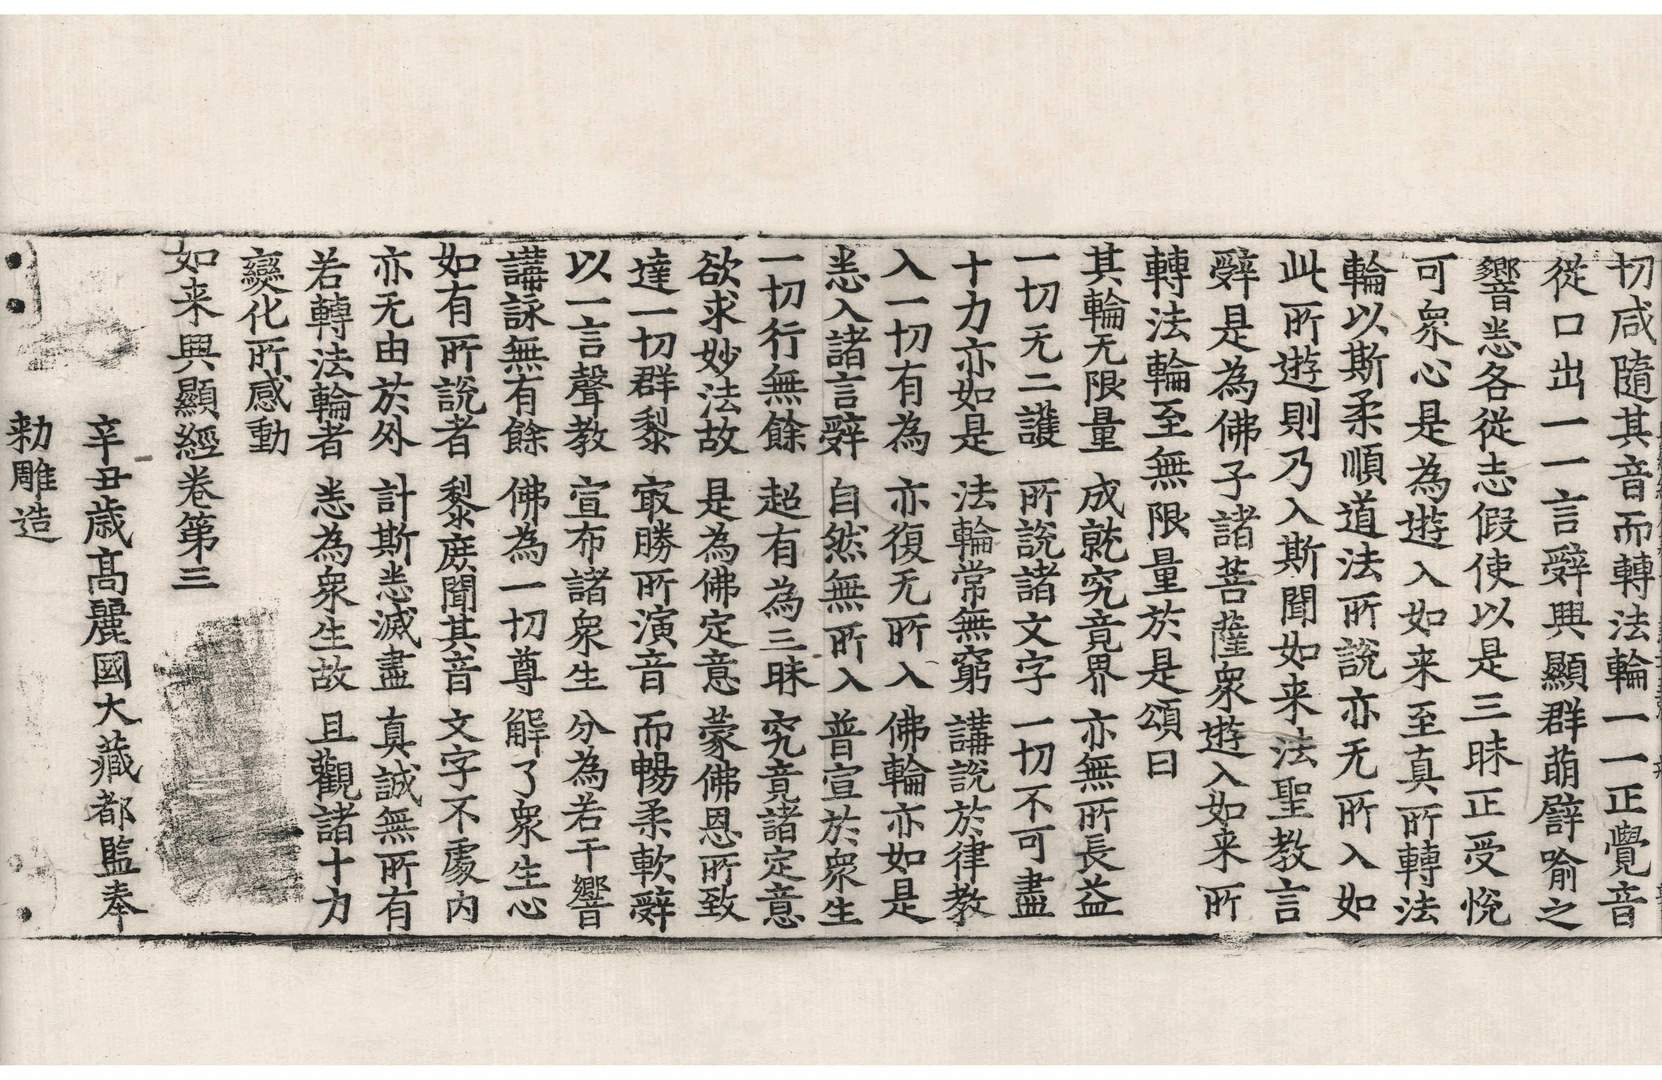 切咸隨其音而轉法輪一一正覺音
從口出一一言辭興顯群萌辟喻之
響悉各從志假使以是三昧正受悅
可衆心是為遊入如来至真所轉法
輪以斯柔順道法所說亦无所入如
此所遊則乃入斯聞如来法聖教言
辭是為佛子諸菩薩衆遊入如来所
轉法輪至無限量於是頌曰
其輪无限量　成就究竟界　亦無所長益
一切无二護　所說諸文字　一切不可盡
十力亦如是　法輪常無窮　講說於律教
入一切有為　亦復无所入　佛輪亦如是
悉入諸言辭　自然無所入　普宣於衆生
一切行無餘　超有為三昧　究竟諸定意
欲求妙法故　是為佛定意　蒙佛恩所致
達一切群黎　㝡勝所演音　而暢柔軟辭
以一言聲教　宣布諸衆生　分為若干響
講詠無有餘　佛為一切尊　解了衆生心
如有所說者　黎庶聞其音　文字不處内
亦无由於外　計斯悉滅盡　真誠無所有
若轉法輪者　悉為衆生故　且觀諸十力
變化所感動
如来興顯經卷第三
辛丑歲高麗國大藏都監奉
勑雕造